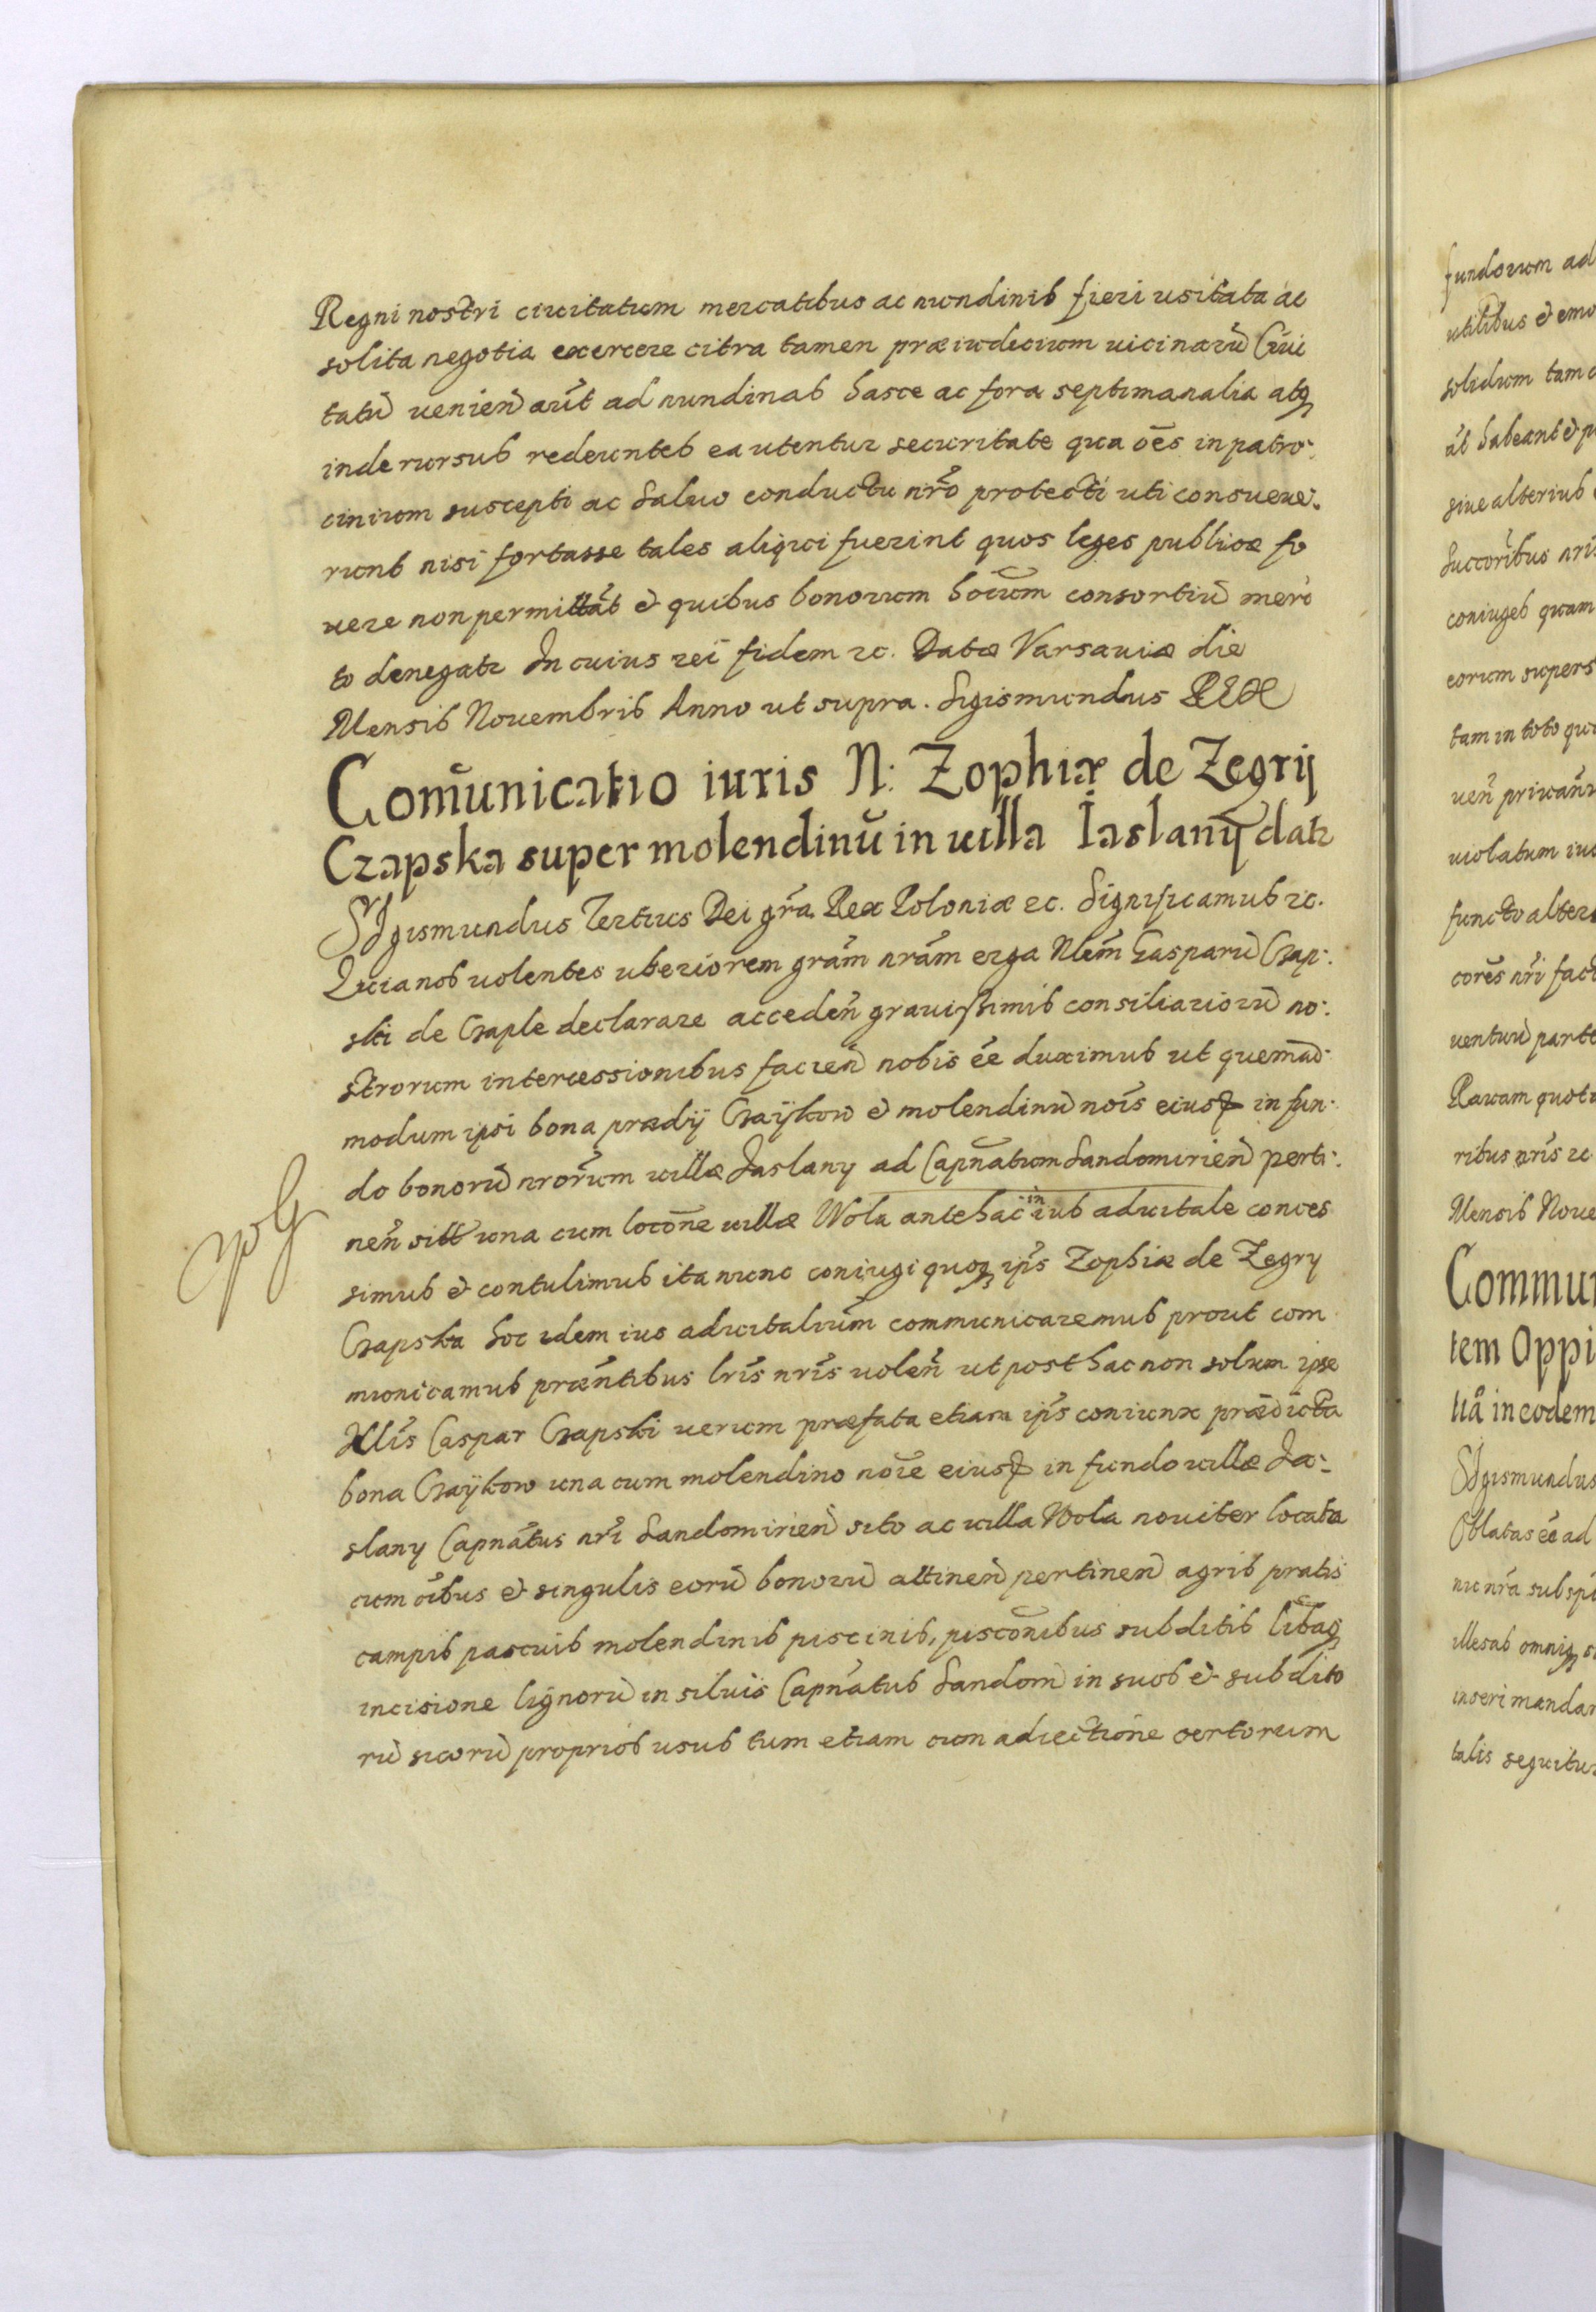 Regni nostri ciuitatum mercatibus ac nundinis fieri usitata ac
solita negotia exercere citra tamen præiudicium uicinarũ Ciui
tatũ ueniẽn aũt ad nundinas hasce ac fora septimanalia atq
inde rursus redeuntes ea utentur securitate qua oẽs in patro:
cinium suscepti ac saluo conductu nr̃o protecti uti consueue:
runt nisi fortasse tales aliqui fuerint quos leges publicæ fo
uere non permittãt & quibus bonorum hoĩum consortiũ meri
to denegatr In cuius rei fidem ꝛc. Datæ Varsauiæ die
Mensis Nouembris Anno ut supra. Sigismundus REX
Com̃unicatio iuris N: Zophiæ de Zegrij
Czapska super molendinũ in uilla Iaslanÿ datr
SIgismundus Tertius Dei gr̃a Rex Poloniæ ꝛc. Significamus ꝛc.
Quia nos uolentes uberiorem grãm nrãm erga Nlẽm Gasparũ Czap:
ski de Czaple declarare accedeñ grauissimis consiliariorũ no:
strorum intercessionibus facieñ nobis ẽe duximus ut quemad:
modum ipsi bona prædij Czaÿkow & molendinũ noĩs eiusd in fun:
do bonorũ nrorũm uillæ Jaslany ad Capñatum Sandomirieñ perti:
neñ sitt una cum locoñe uillæ Wola antehac in ius aduitale conces
simus & contulimus ita nunc coniugi quoq ip̃s Zophiæ de Zegry
Czapska hoc idem ius aduitalium communicaremus prout com
municamus præsẽntibus lr̃is nr̃is uoleñ ut posthac non solum ipse
Nlis Caspar Czapski uerum præfata etiam ip̃s coniunx prædicta
bona Czaÿkow una cum molendino noĩe eiusd in fundo uillæ Ja:
slany Capñatus nr̃i Sandomirieñ sito ac uilla Wola nouiter locata
cum oĩbus & singulis eorũ bonorũ attineñ pertineñ agris pratis
campis pascuis molendinis piscinis, piscoñibus subditis libaq
incisione lignorũ in siluis Capñatus Sandom̃ in suos & subdito
rũ suorũ proprios usus tum etiam cum adiectione certorum
fundorum ad
utilibus & emo
solidum tam
habeant & p
siue alterius
Succoribus nris
coniuges quam
eorum supers
tam in toto qu
ueñ priuañ
uiolatum iu
functo alter
cores nr̃i fac
uenturũ part
Rauam quot
ribus nr̃is ꝛc
Mensis Noue
Commun
tem Oppi
in eodem
SIgismundus
Oblatas ẽe ad
nr̃a sub
illesas omniq
inseri mandar
talis sequitur